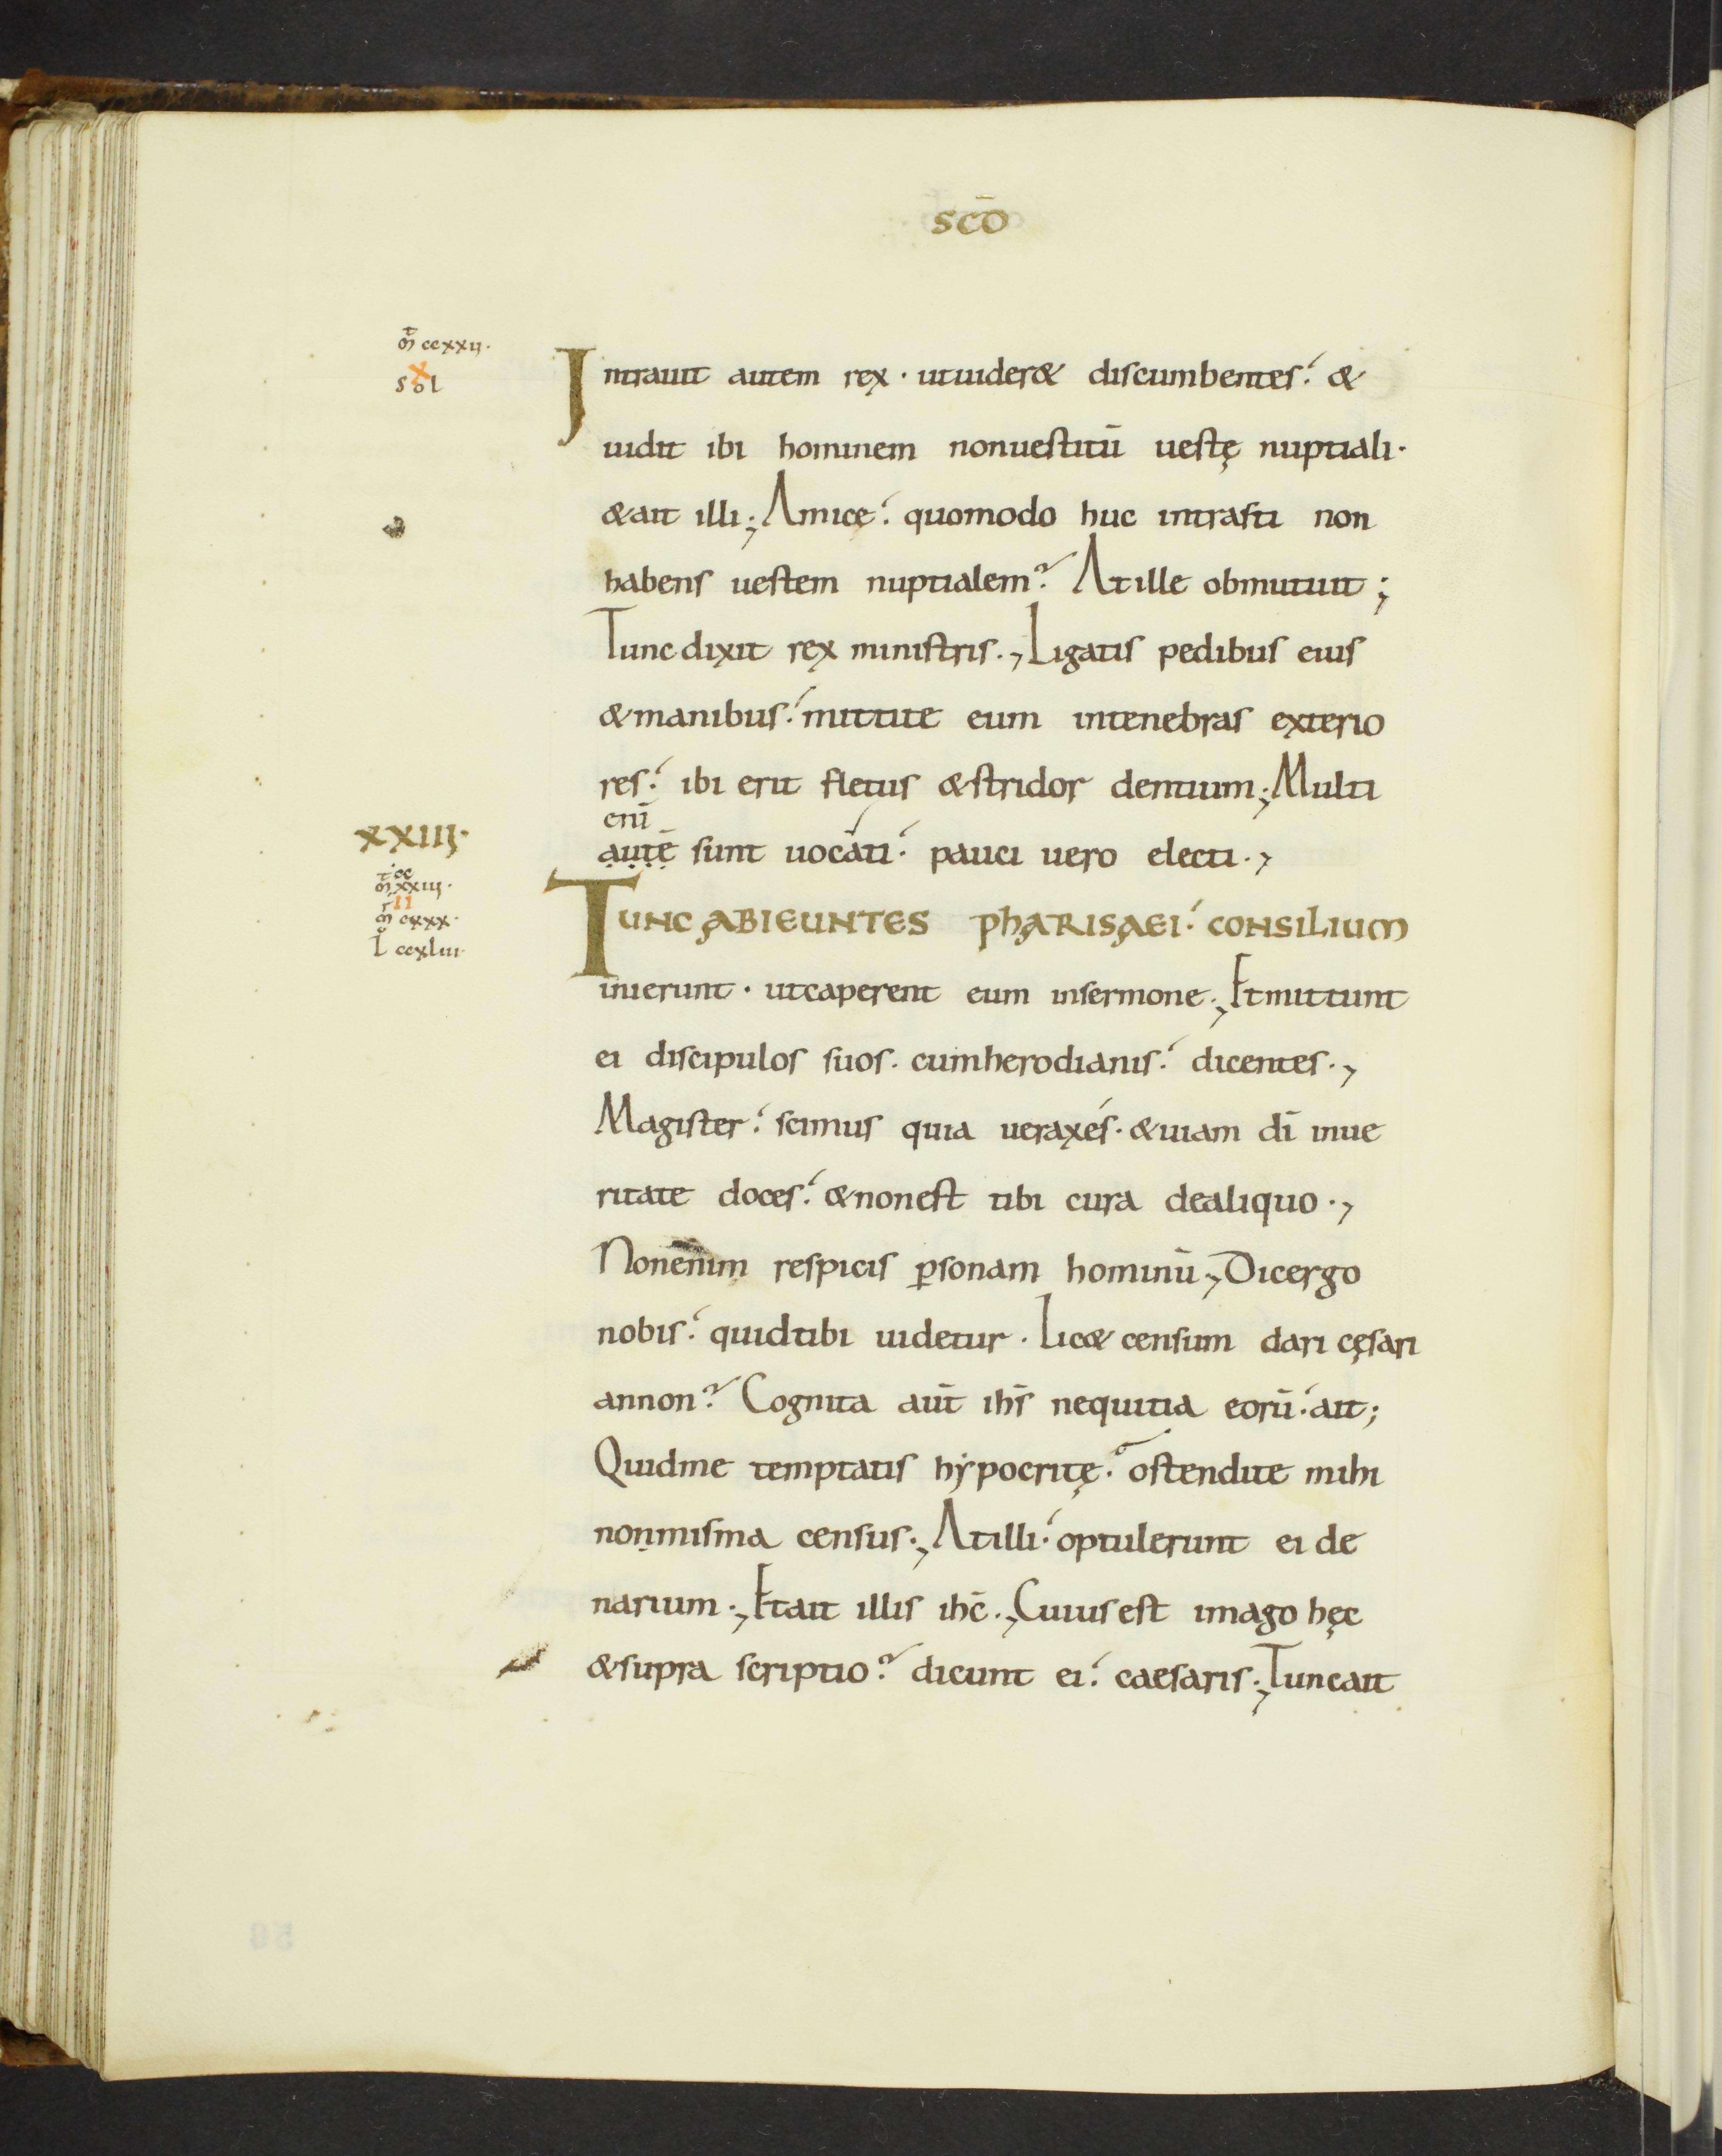 SCŌ
m̄t ccxxii·
X
sol
Intrauit autem rex · utuider& discumbentes : &
uidit ibi hominem nonuestitū uestę nuptiali·
&ait illi; Amice : quomodo huc intrasti non
habens uestem nuptialem? Atille obmutuit ;
Tunc dixit rex ministris ; Ligatis pedibus eius
&manibus : mittite eum intenebras exterio
res : ibi erit fletus &stridor dentium; Multi
enī
autē sunt uocati : pauci uero electi ;
XXIII·
m̄t ccxxiii·
II
mr cxxx·
L ccxliii·
TUNC ABIEUNTES PhARISAEI : CONSILIUM
inierunt · utcaperent eum insermone ; Etmittunt
ei discipulos suos · cumherodianis : dicentes ;
Magister : scimus quia ueraxés · &uiam dī inue
ritate doces : &nonest tibi cura dealiquo ;
Nonenim respicis ꝑsonam hominū ; Dicergo
nobis : quidtibi uidetur · Lic& censum dari cęsari
annon? Cognita aūt ihs̄ nequitia eorū : ait;
Quidme temptatis hẏpocritę · ostendite mihi
nonmisma census ; Atilli : optulerunt ei de
narium ; Etait illis ihc̄ ; Cuiusest imago hęc
&supra scriptio? dicunt ei : caesaris ; Tuncait